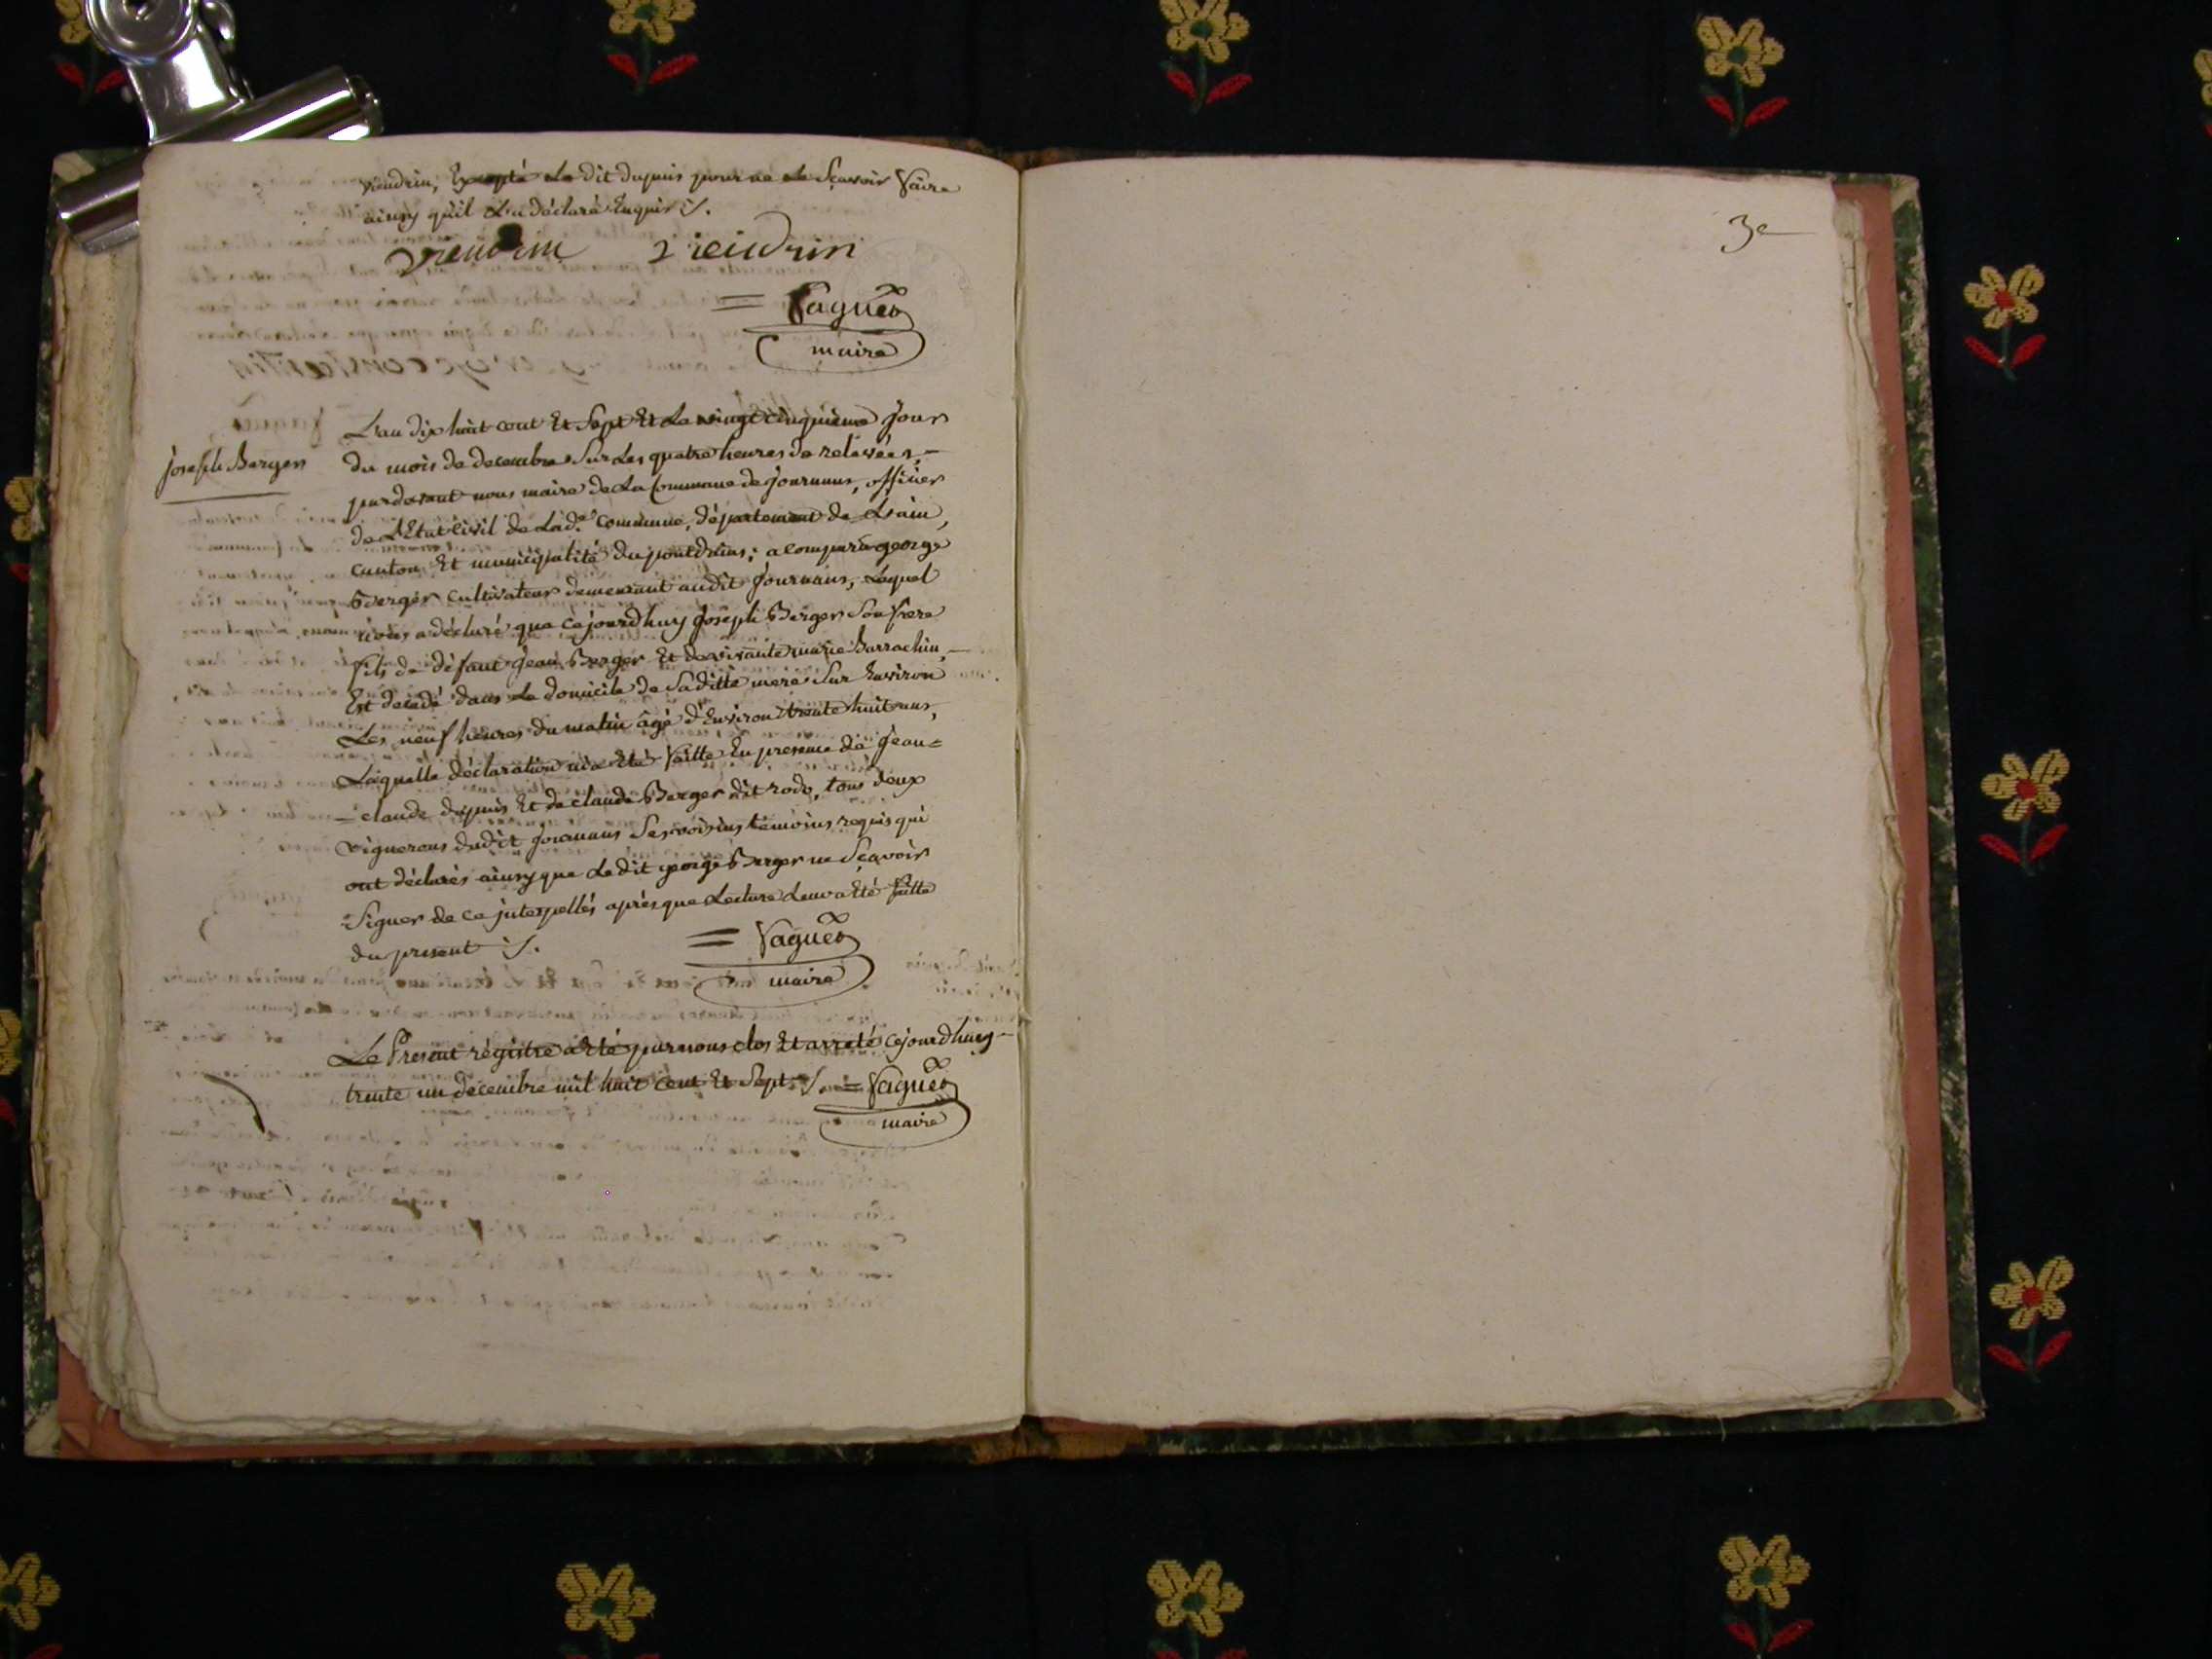 viendrin, Excepté le dit dupuis pour ne le Sçavoir faire
ainsy qu'il L'a déclaré Enquis ./.
viendrin viendrin
= faguet
maire
L'an dix huit cent Et Sept Et Le vingt cinquième Jour
joseph Berger
du mois de decembre Sur Les quatre heures de relevées, –
pardevant nous maire de La Commune de journans, officier
de L'Etat civil de Lad.e commune, département de L'ain,
canton Et municipalité du pontdains; a comparu george
Berger cultivateur demeurant audit Journans, Lequel
nous a déclaré que cejourdhuy Joseph Berger Son frere
fils de défunt Jean Berger Et de vivante marie Barrachin, –
Est decedé dans Le domicile de Saditte mere Sur Environ
Les neuf heures du matin âgé d'Environ trente huit ans,
Laquelle déclaration m'a Eté faitte En presence de Jean =
– claude dupuis Et de claude Berger dit rodo, tous deux
vignerons dudit Journans Ses voisins témoins requis qui
ont déclarés ainsy que Le dit george Berger ne Sçavoir
Signer de ce jnterpellés après que Lecture Leur a Eté faitte
du present ./.
= faguet
maire
Le Present régistre a Eté par nous clos Et arreté cejourdhuy –
trente un décembre mil huit cent Et Sept ./. = faguet
maire
3e